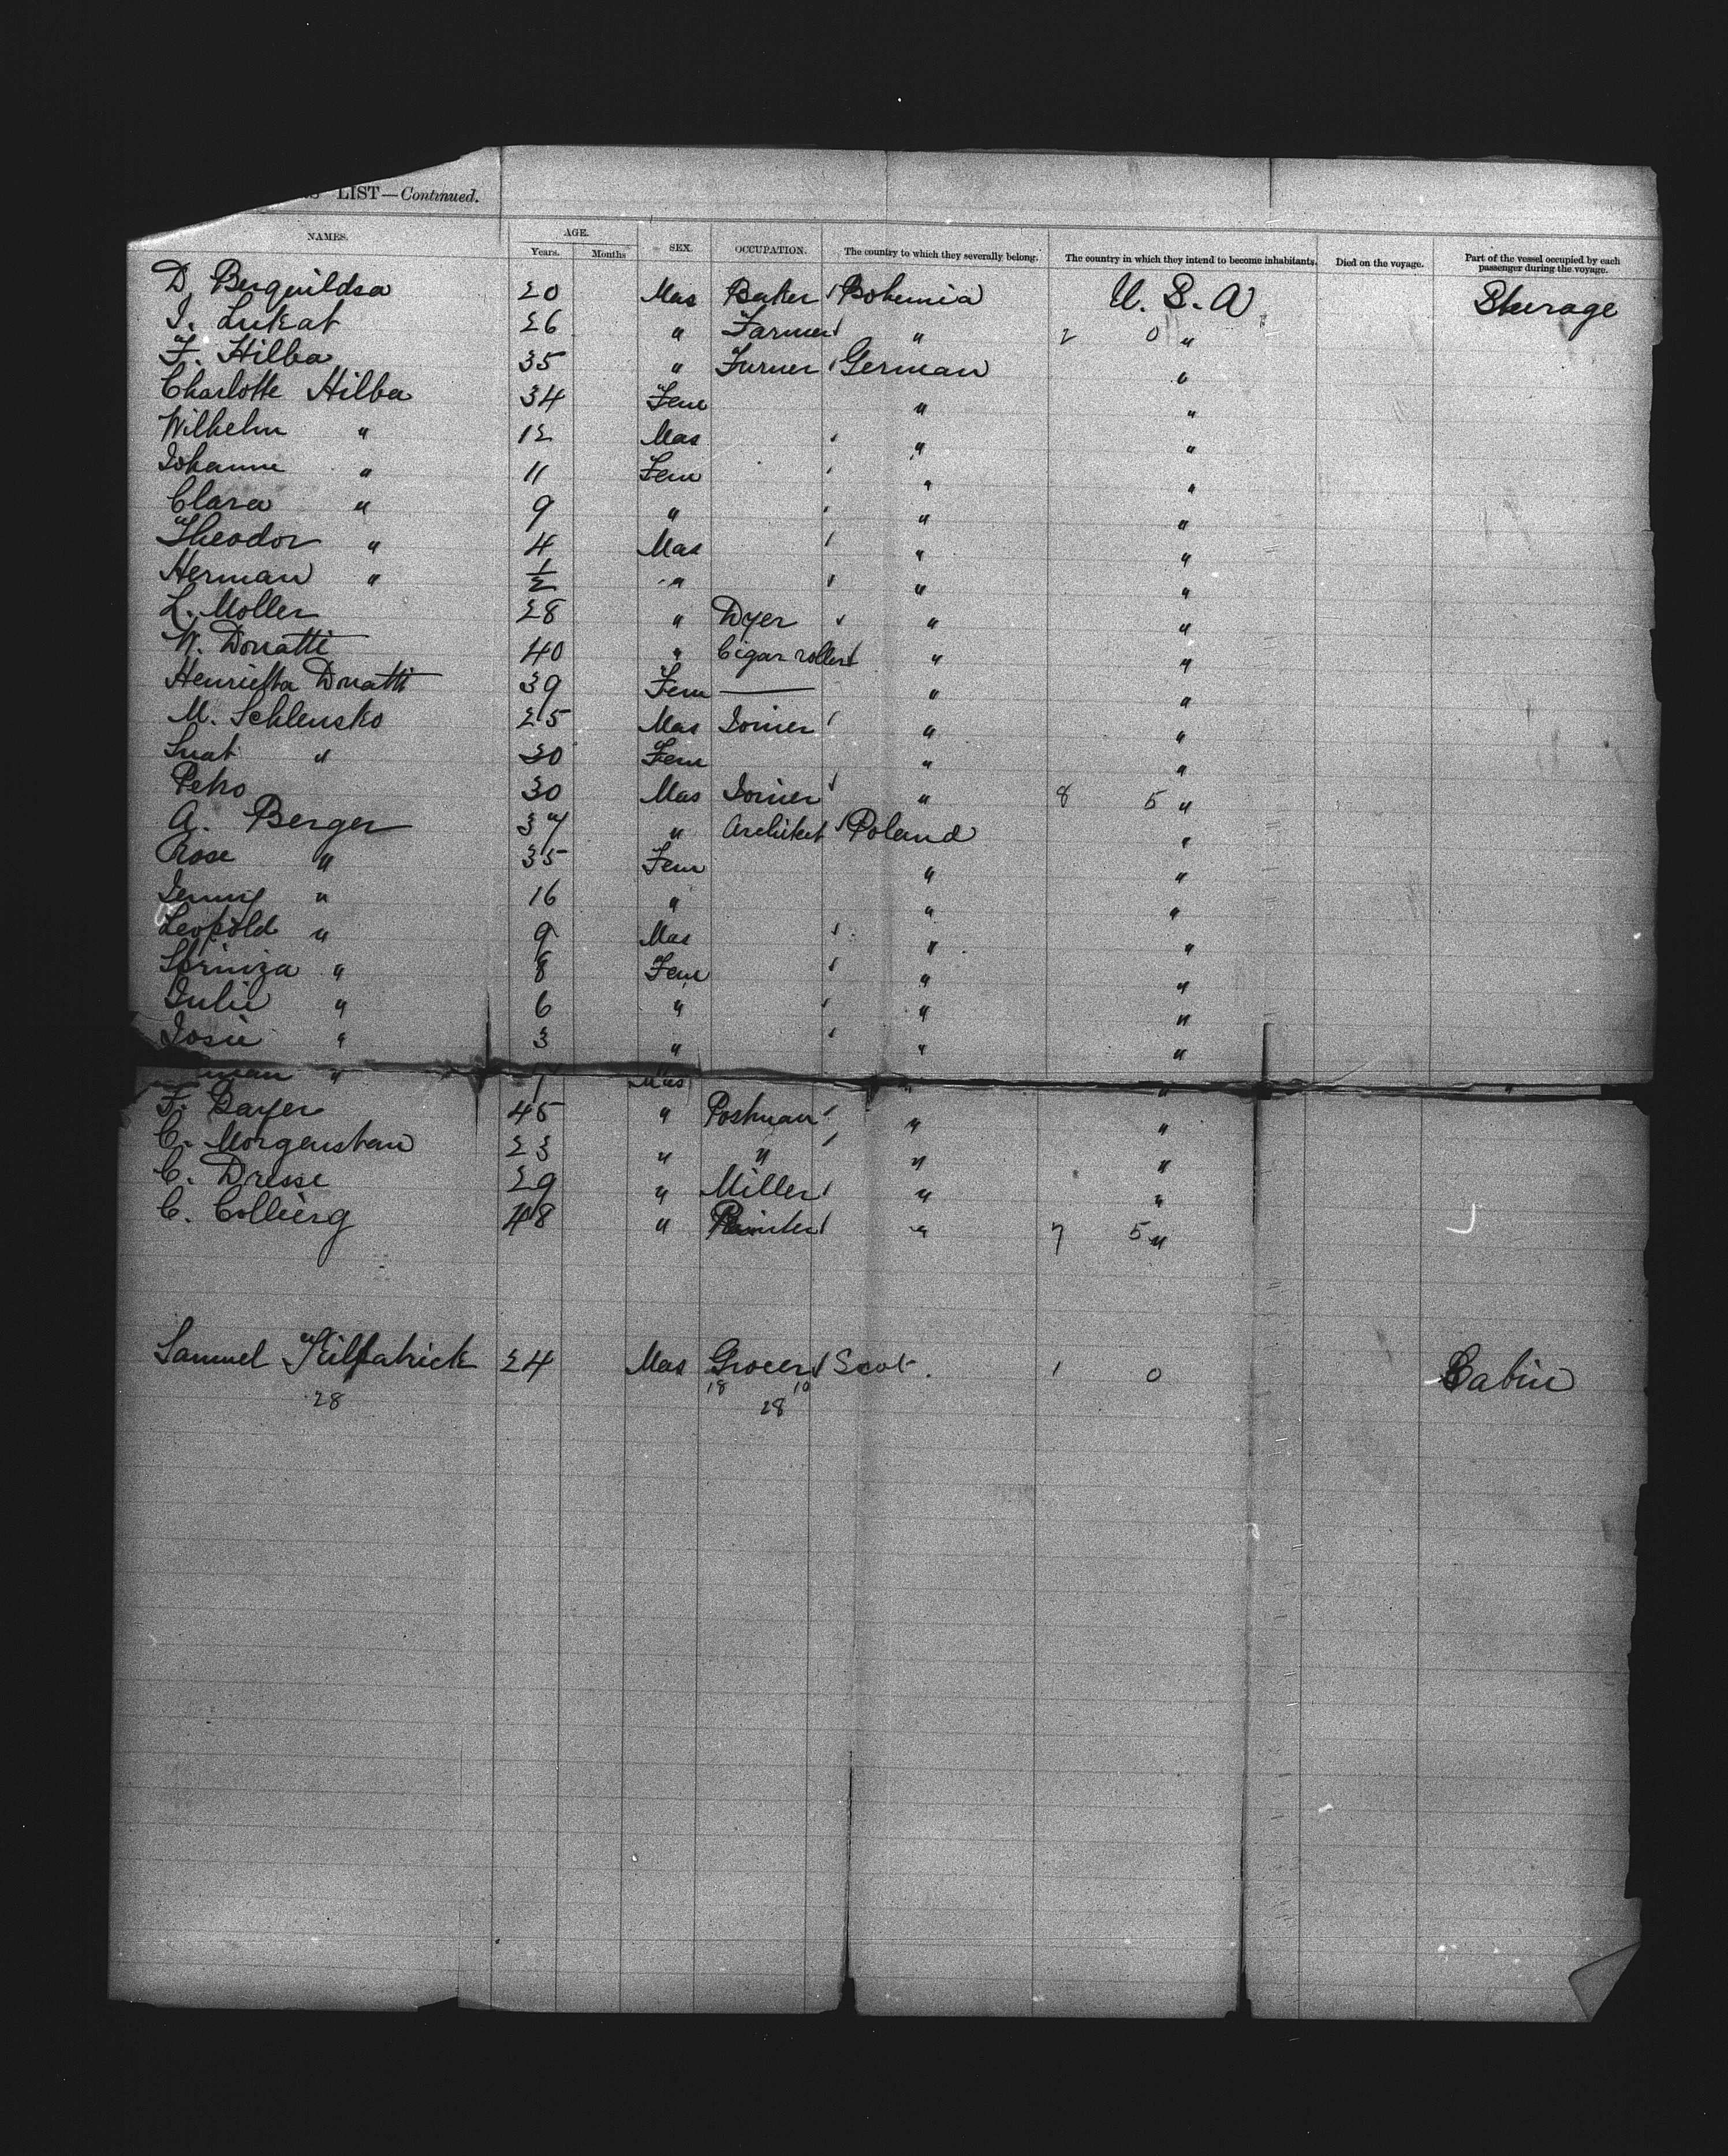 LIST—Continued.
NAMES. AGE. Years. Months SEX. OCCUPATION. The country to which they severally belong. The country in which they intend to become inhabitants. Died on the voyage. Part of the vessel occupied by each passenger during the voyage.
D. Berquildsa 20 Mas Baker Bohemia U. S. A Sturage
I. Lukat 26 " Farmer " 2 0 "
F. Hilba 35 " Turner German "
Charlotte Hilba 34 Fem " "
Wilhelm " 12 Mas " "
Johanne " 11 Fem " "
Clara " 9 " " "
Theodor " 4 Mas " "
Herman " 1/2 " " "
L. Moller 28 " Dyer " "
W. Donatti 40 " Cigar roller " "
Henrietta Donatti 39 Fem — " "
M. Schlensko 25 Mas Joiner " "
" 30 Fem " "
Petro 30 Mas Joiner " 8 5 "
A. Berger 37 " Architect Poland "
Rose " 35 Fem " "
Jenny " 16 " " "
Leopold " 9 Mas " "
" 8 Fem " "
Julie " 6 " " "
Josie " 3 " " "
" 1 Mas " " "
F. Bayer 45 " Postman " "
C. Morgenstern 23 " " " "
C. Dresse 29 " Miller " "
C. Collierg 48 " " 7 5 "
Samuel Kilpatrick 24 Mas Grocer Scot. 1 0 Cabin
28 18 10
28